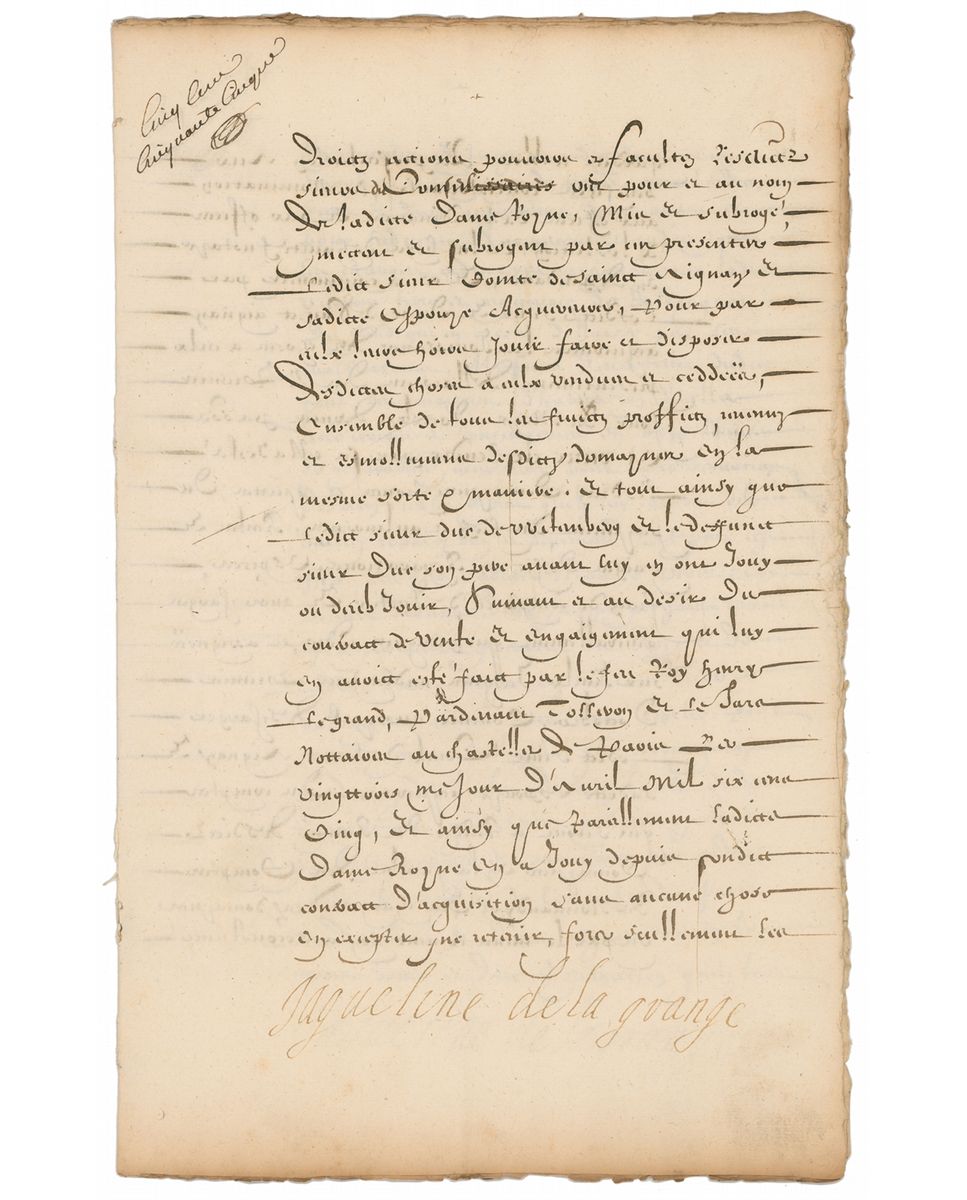 Cinq cens
cinquante cinque
Droictz actions pouvoirs et facultez Lesdictz
sieurs de Commissaires ont pour et au nom
de ladicte Dame Royne, Mis et subrogé,
mettent et subrogent par ces presentes
Ledict sieur Comte de sainct Aignan et
sadicte Espouze Acquereurs, Pour par
eulx leurs hoirs Jouir faire et disposer
Desdictes choses a eulx vendues et ceddées,
Ensemble de tous les fruictz proffictz, revenuz
et esmollumens desdictz domaynes en la
mesme sorte & maniere. Et tout ainsy que
Ledict sieur duc de Witenberg et le deffunct
sieur Duc son pere avant luy en ont Jouy
ou deub Jouir, Suivant et au desir du
contract de vente et engaigement qui luy
en avoict esté faict par le feu Roy Henry
Le grand, Pardevant Tolleron et Le
Nottaires au chastellet de Paris Le
vingttrois me Jour D'Avril Mil six cens
Cinq, Et ainsy que Pareillement Ladicte
Dame Royne en a Jouy depuis sondict
contract D'acquisition sans aucune chose
en excepter ne retenir, fors seullement les
Jaqueline de la grange